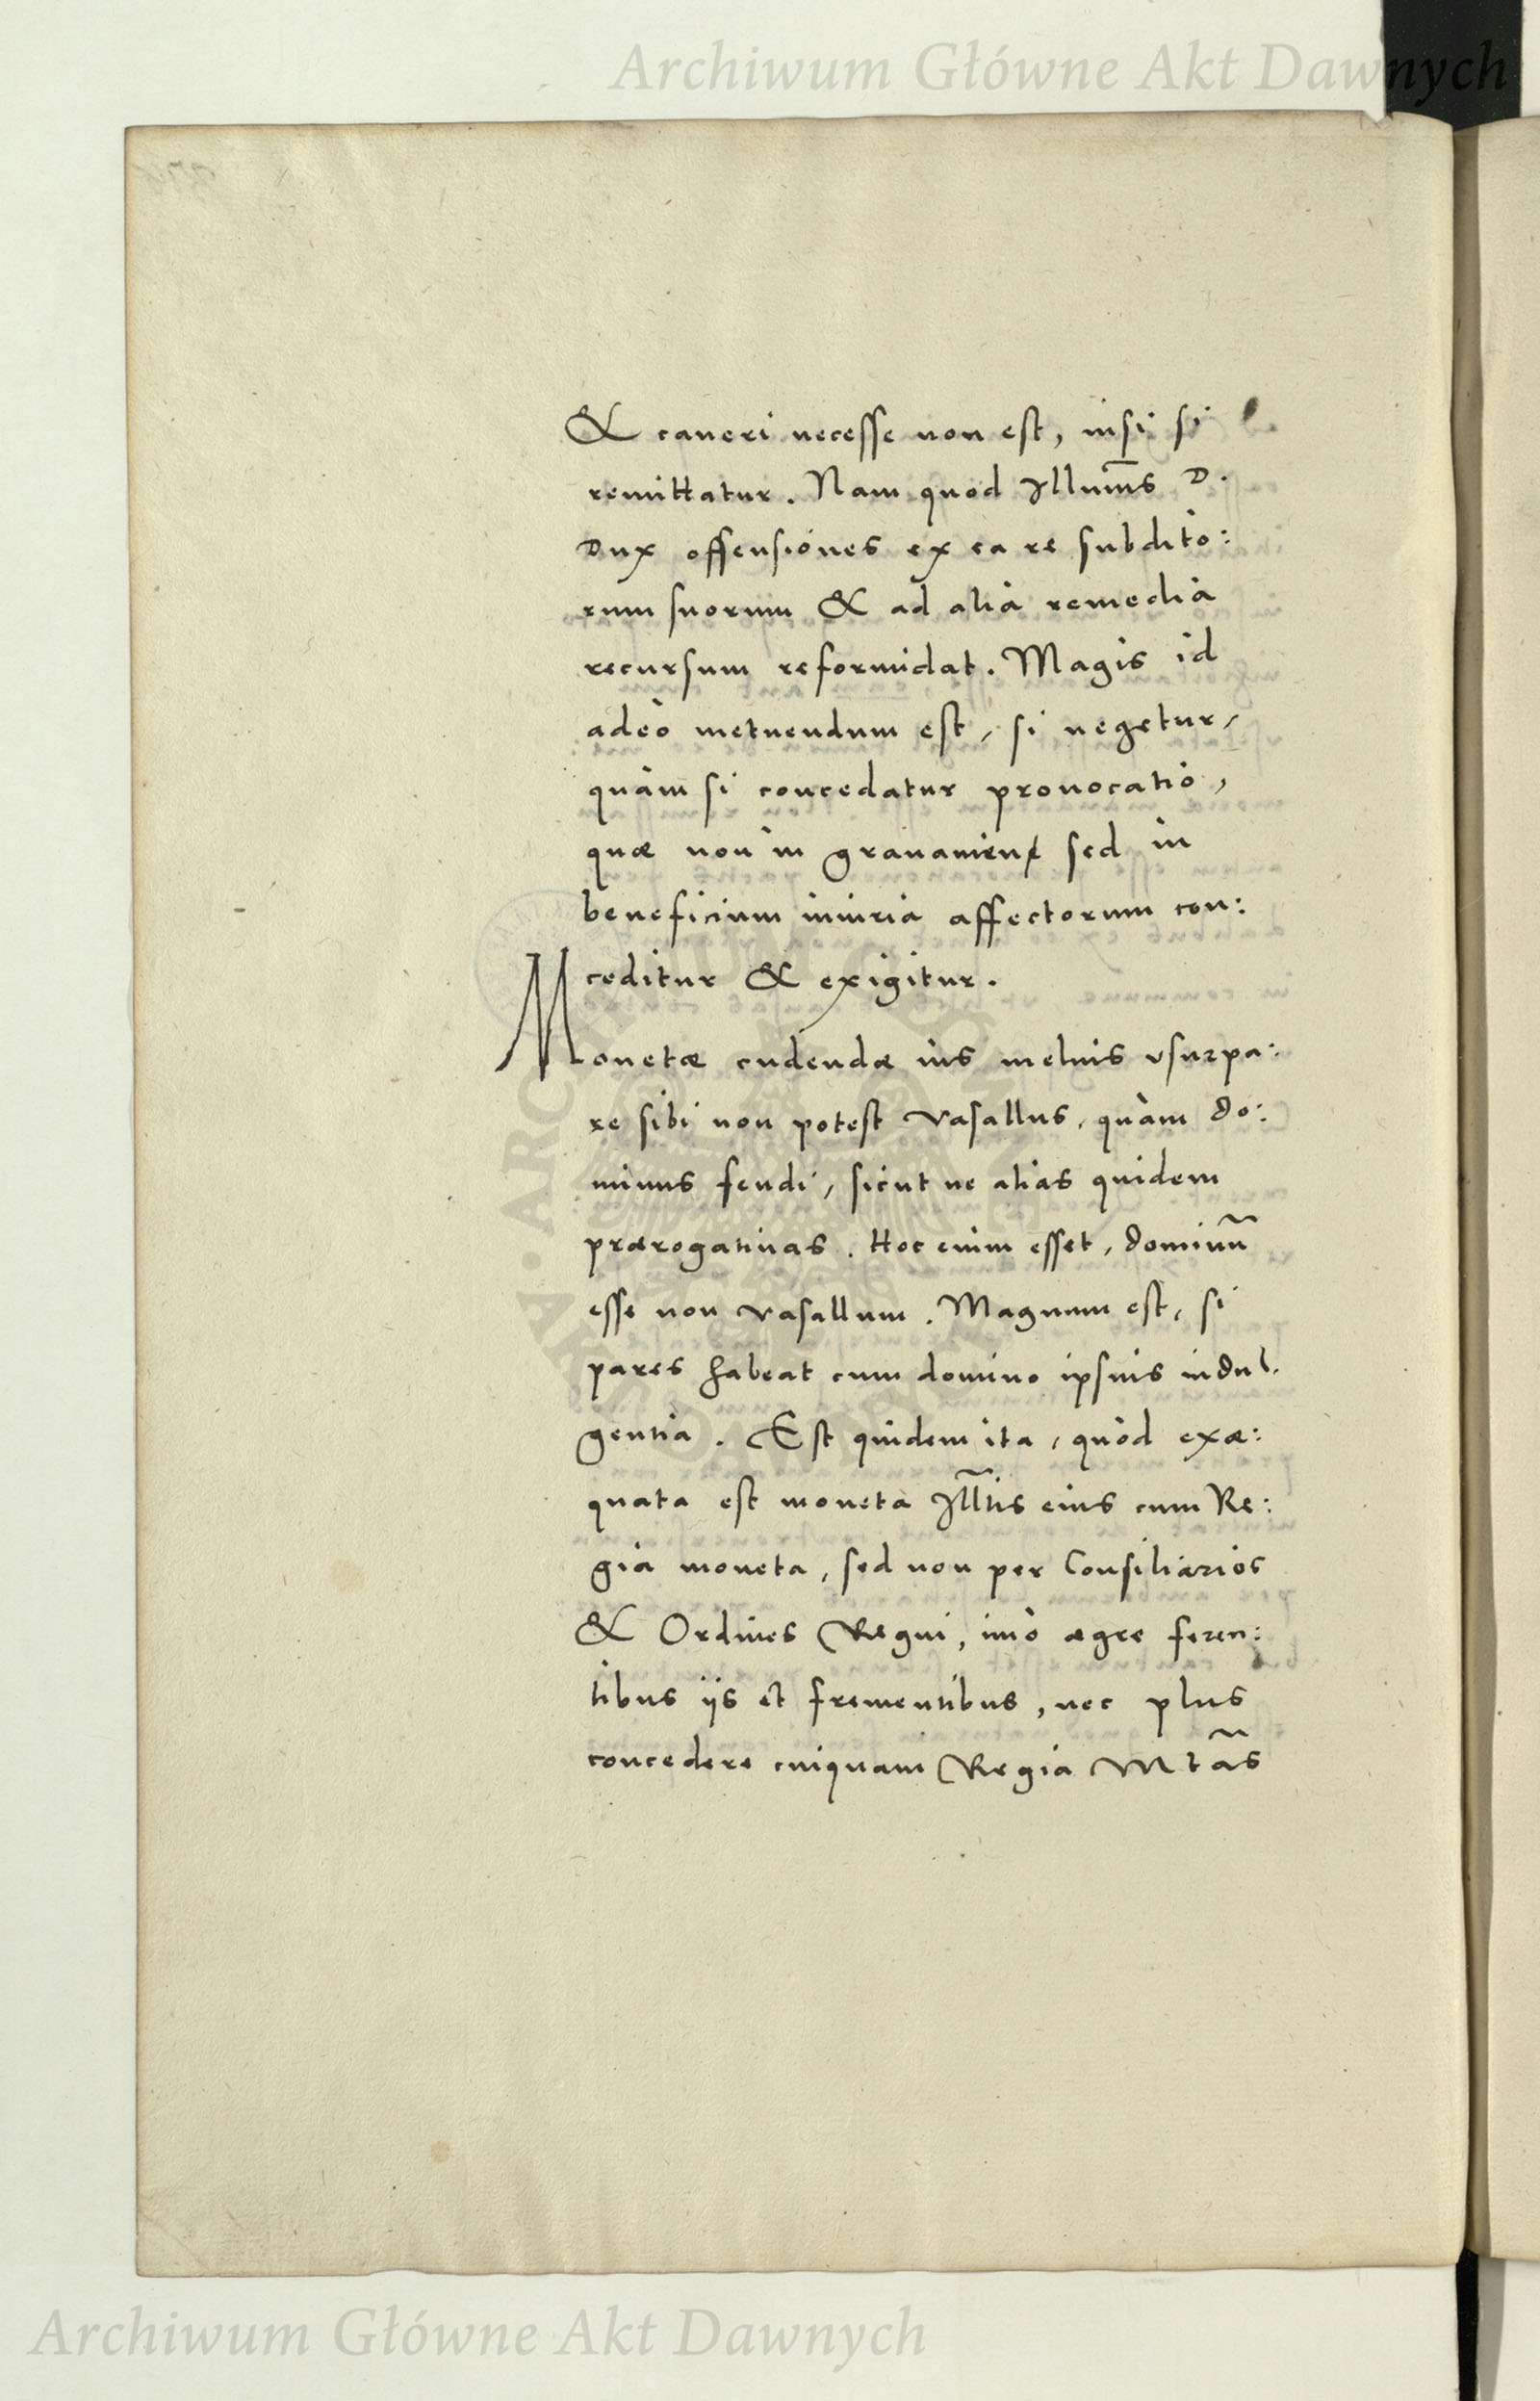 Archiwum Główne Akt Dawnych
& caueri necesse non est, nisi si
remittatur. Nam quod Illum̃s D.
Dux offensiones ex ea re subdito:
rum suorum & ad alia remedia
recursum reformidat. Magis id
adeò metuendum est, si negetur,
quàm si concedatur prouocatio,
quæ non in grauamen sed in
beneficium iniuria affectorum con:
ceditur & exigitur.
Monetæ cudendæ ius melius vsurpa:
re sibi non potest vasallus, quàm do:
minus feudi, sicut ne alias quidem
prærogatiuas. Hoc enim esset, dominũ
esse non vasallum. Magnum est, si
pares habeat cum domino ipsius indul.
gentia. Est quidem ita, quòd exæ:
quata est moneta Ill̃tis eius cum Re:
gia moneta, sed non per Consiliarios
& Ordines Regni, imò ægre feren:
tibus iis et frementibus, nec plus
concedere cuiquam Regia Mtãs
Archiwum Główne Akt Dawnych